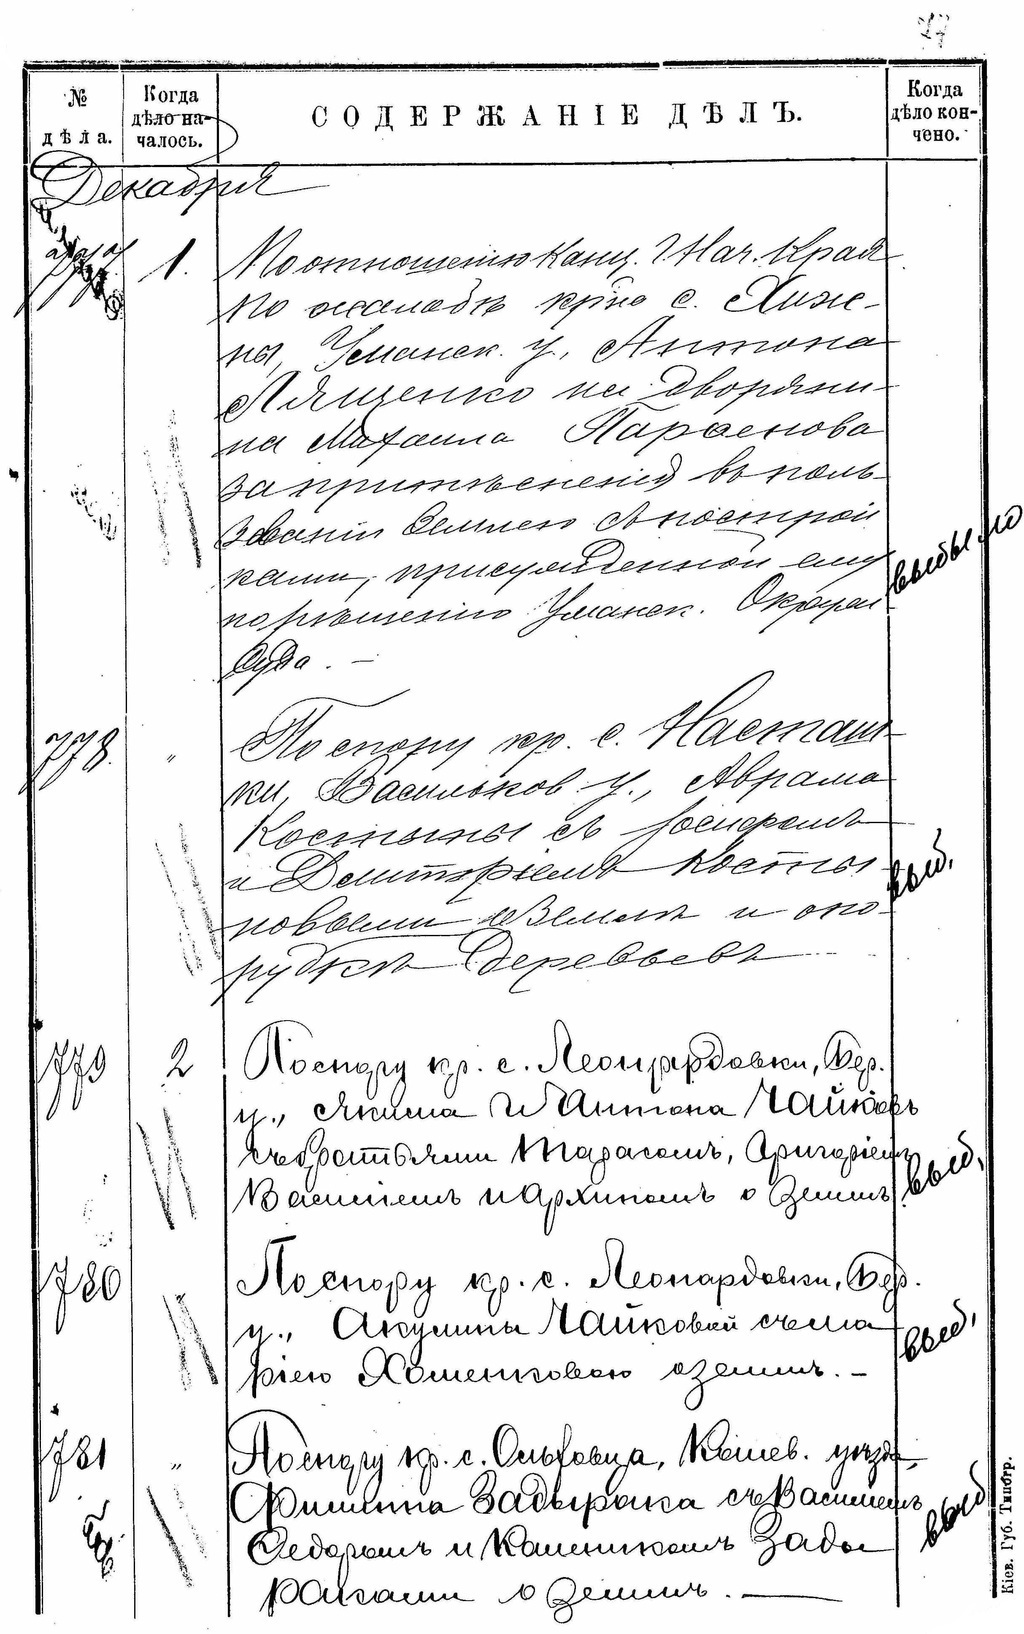 27
№ дѣла.
Когда дѣло началось.
СОДЕРЖАНІЕ ДѢЛЪ.
Когда дѣло кончено.
Декабря
777 1. По отношенію Канц. Г. Нач. Края
по жалобѣ кр-на с. Хиж-
ны, Уманск. у., Антона
Лященко на дворяни-
на Михаила Парѳенова
за притѣсненія въ поль-
зованіи землею съ построй
ками, присужденной ему
по рѣшенію Уманск. Окруж.
Суда. —
выбыло
778. " По спору кр. с. Насташ-
ки, Васильков. у., Аврама
Костыны съ Іосифомъ
и Дмитріемъ Косты
новыми о землѣ и опо
рубкѣ деревьевъ
выб.
779 2 По спору кр. с. Леонардовки, Бер.
у., Якима и Антона Чайковъ
съ братьями Тарасомъ, Григоріемъ
Василіемъ и Архипомъ о землѣ
выб.
780 " По спору кр. с. Леонардовки, Бер.
у., Акулины Чайковой съ Ма
ріею Хоменковою о землѣ. —
выб.
781 " По спору кр. с. Ольховца, уѣзда,
Филиппа Задырака съ Василіемъ
Ѳедоромъ и Каленикомъ Зады
раками о землѣ. —
выб
Кіев. Губ. Типогр.